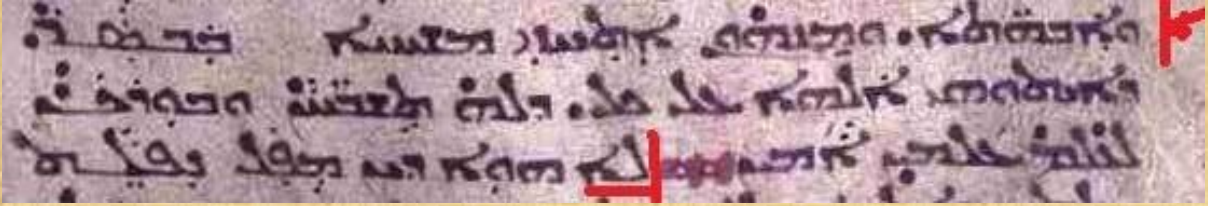 ܘܐܒܗ̈ܬܐ. ܘܡܢܗܘܢ ܐܬܚܙܝ ܡܫܝܚܐ ܒܒܣܪ
ܕܐܝܬܘܗܝ ܐܠܗܐ ܥܠ ܟܠ. ܕܠܗ ܬܫܒ̈ܚܢ ܘܒܘܪ̈ܟܢ
ܠܥܠܡ ܥܠܡܝܢ ܐܡܝܢ ܠܐ ܗܘܐ ܕܝܢ ܡܦܠ ܢܦܠܬ